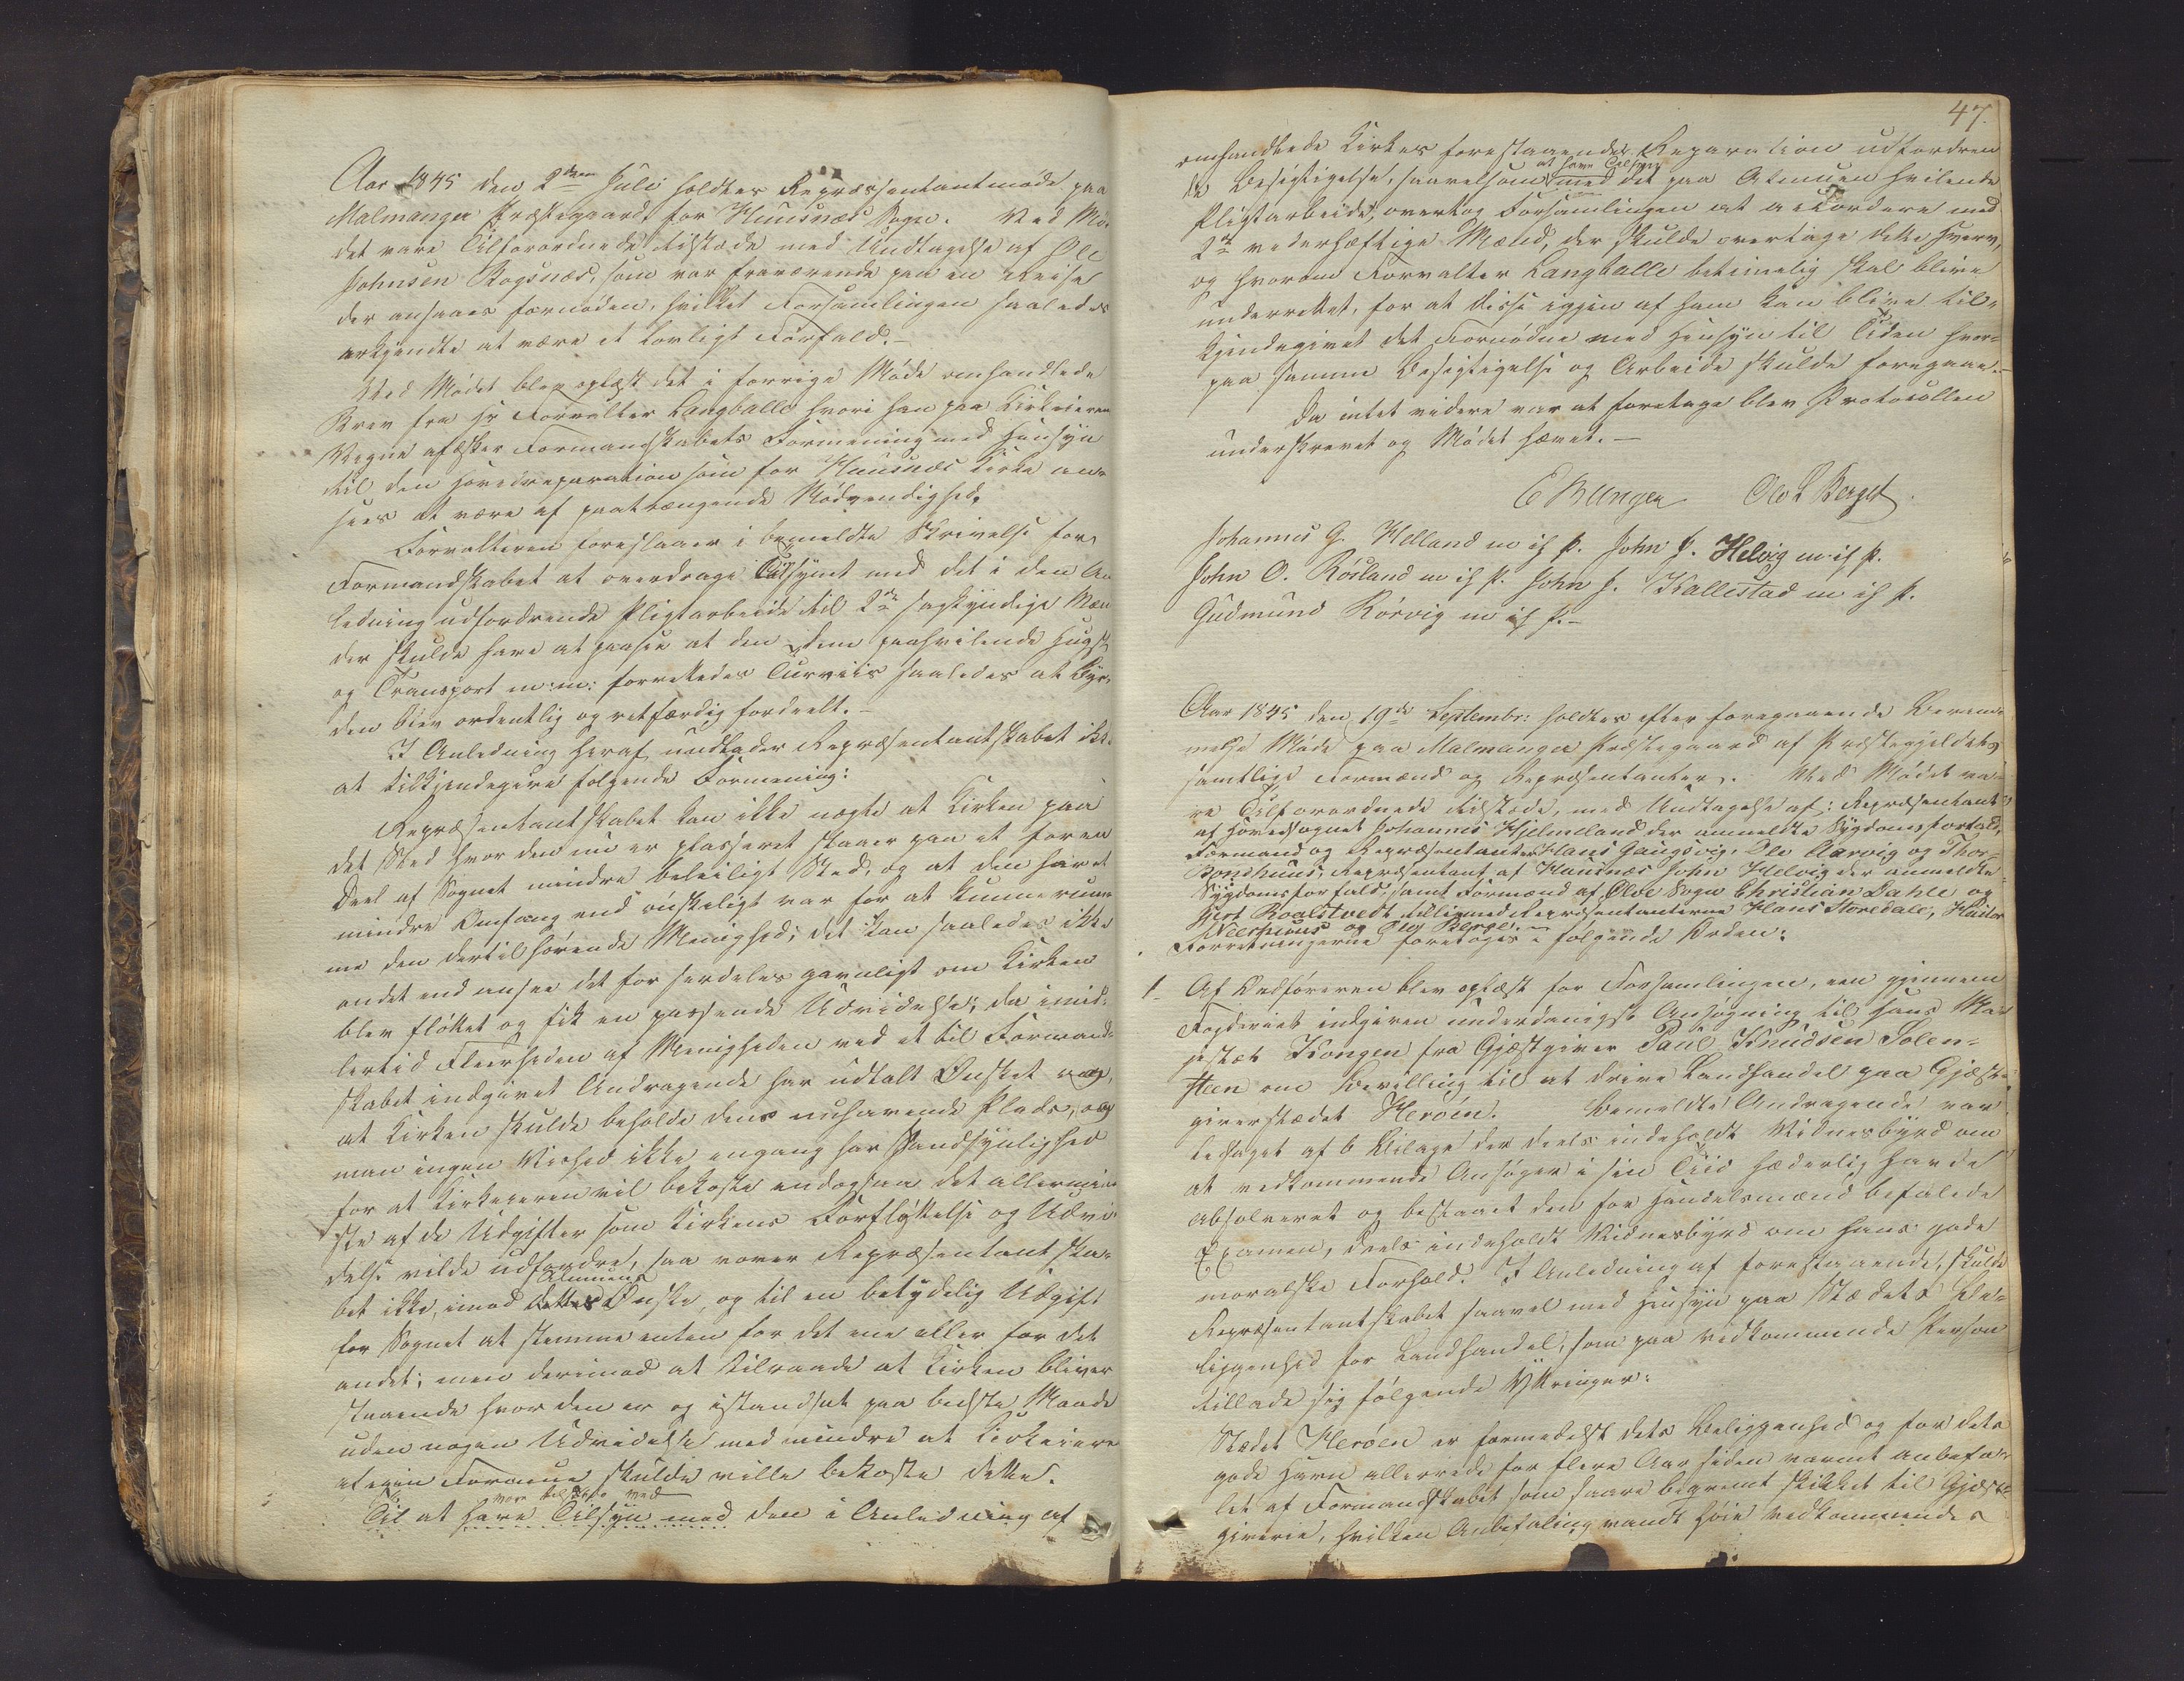 Aar 1845 den 2den Juli holdtes Repræsentantmøde paa
Malmanger Præstegaard for Huusnæs Sogn. Ved Mø-
det vare Tilforordnede tilstæde med Undtagelse af Ole
Johnsen Bogsnæs, som var fraværende paa en Reise
der ansaaes fornøden, hvilket Forsamlingen saaledes
erkjendte at være et lovligt Forfald.-
Ved Mødet blev oplæst det i forrige Møde omhandlede
Brev fra Hr Forvalter Langballe hvori han paa Kirkeierens
Vegne afæsker Formandskabets Formening med Hensyn
til den Hovedreparation som for Huusnæs Kirke an-
sees at være af paatrængende Nødvendighed.
Forvalteren foreslaaer i bemeldte Skrivelse for
Formandskabet at overdrage Tilsynet med det i den An-
ledning udfordrende Pligtarbeide til 2de sagkyndige Mæn
der skulde have at paasee at den dem paahvilende Hugst
og Transport m:m: forrettedes Turviis saaledes at Byr-
den blev ordentlig og retfærdig fordeelt.-
I Anledning heraf undlader Repræsentantskabet ikke
at tilkjendegive følgende Formening:
Repræsentantskabet kan ikke nægte at Kirken paa
det Sted hvor den nu er plasseret staaer paa et for en
Deel af Sognet mindre beleiligt Sted, og at den har et
mindre Omfang end ønskeligt var for at kunne rum-
me den dertil hørende Menighed; det kan saaledes ikke
andet end ansee det for serdeles gavnligt om Kirken
blev fløttet og fik en passende Udvidelse; da imid-
lertid Fleerheden af Menigheden ved et til Formand-
skabet indgivet Andragende har udtalt Ønsket om,
at Kirken skulde beholde dens nuhavende Plads, og
man ingen Vished ikke engang har Sandsynlighed
for at Kirkeieren vil bekoste endogsaa det allermin-
ste af de Udgifter som Kirkens Forfløttelse og Udvi-
delse vilde udfordre, saa vover Repræsentantska-
Almuens
bet ikke, imod dettes Ønske, og til en betydelig Udgift
for Sognet at stemme enten for det ene eller for det
andet; men derimod at tilraade at Kirken bliver
staaende hvor den er og istandsat paa bedste Maade
uden nogen Udvidelse med mindre at Kirkeieren
af egen Formue skulde ville bekoste dette.
være tilstæde ved
Til at have Tilsyn med den i Anledning af
47.
omhandlede Kirkes forestaaende Reparation udfordren
at have Tilsyn
de Besigtigelse, saavelsom med det paa Almuen hvilende
Pligtarbeide, overtog Forsamlingen at accordere med
2de vederhæftige Mænd, der skulde overtage dette Hverv,
og hvorom Forvalter Langballe betimelig skal blive
underrettet, for at disse igjen af ham kan blive til-
kjendegivet det Fornødne med Hensyn til Tiden hvor-
paa samme Besigtigelse og Arbeide skulde foregaae.-
Da intet videre var at foretage blev Protocollen
underskrevet og Mødet hævet.-
E Bunger Ole L Berget
Johannes G. Helland m i h P. John J. Helvig m i h P.
John O. Røsland m i h P. John J. Kallestad m i h P.
Gudmund Rørvig m i h P.-
Aar 1845 den 19de Septembr: holdtes efter foregaaende Beram-
melse Møde paa Malmanger Præstegaard af Præstegjeldets
samtlige Formænd og Repræsentanter. Ved Mødet va-
re Tilforordnede tilstæde, med Undtagelse af: Repræsentant
af Hovedsognet Johannes Hjelmeland der anmeldte Sygdomsforfald,
Formand og Repræsentanter Hans Gaugsvig, Ole Aarvig og Thor-
Bondhuus, Repræsentant af Huusnæs John Helvig der anmeldte
Sygdomsforfald; samt Formænd af Ølve Sogn Christian Dahle og
Gjert Roalstvedt tilligemed Repræsentanterne Hans Storedale, Halvor
Neerhuus og Ole Berge.-
Forretningerne foretoges i følgende Orden:
1- Af Ordføreren blev oplæst for Forsamlingen, een gjennem
Fogderiet indgiven underdanigst Ansøgning til Hans Ma-
jestæt Kongen fra Gjæstgiver Paul Knudsen Tolen-
steen om Bevilling til at drive Landhandel paa Gjæst-
giverstædet Herøen. Bemeldte Andragende var
ledsaget af 6 Bilage der deels indeholdt Vidnesbyrd om
at vedkommende Ansøger i sin Tiid hæderlig havde
absolveret og bestaaet den for Handelsmænd befalede
Examen, deels indeholdt Vidnesbyrd om hans gode
moralske Forhold. I Anledning af forestaaende, skulde
Repræsentantskabet saavel med Hensyn paa Stædets Be-
liggenhed for Landhandel, som paa vedkommende Person
tillade sig følgende Yttringer:
Stædet Herøen er formedelst dets Beliggenhed og for dets
gode Havn allerede for flere Aar siden varmt anbefa-
let af Formandskabet som saare begvemt skikket til Gjæst-
giverie, hvilken Anbefaling vandt Høie vedkommendes